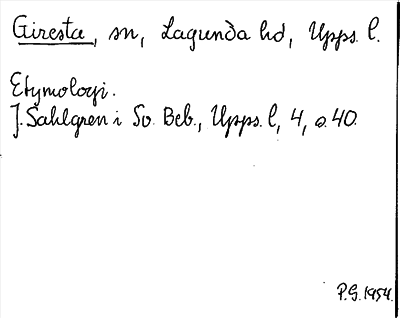 Giresta, sn, Lagunda hd, Upps. l.
Etymologi.
J. Sahlgren i Sv. Beb., Upps. l, 4, s. 40.
P.G. 1954.